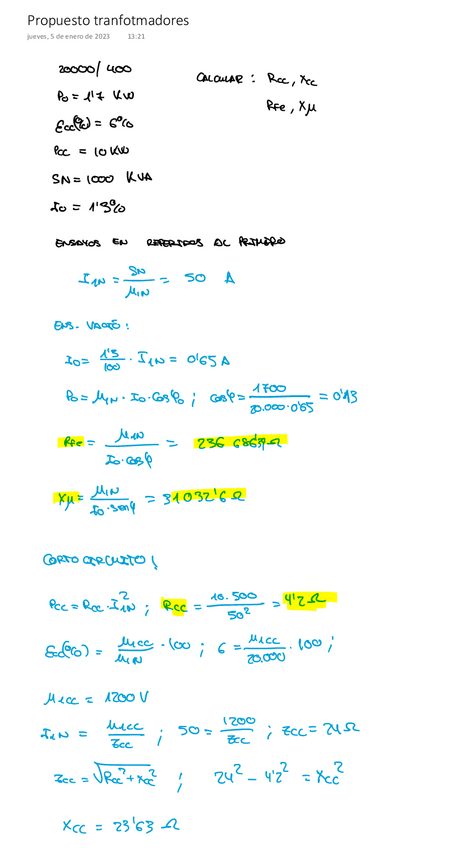 Propuesto tranfotmadores
jueves, 5 de enero de 2023 13:21
20000/400
CALCULAR : Rcc, Xcc
P0 = 1'7 KW
RFe, Xμ
Ecc(%) = 6%
Pcc = 10 KW
SN = 1000 KVA
I0 = 1'3%
ENSAYOS EN REFERIDOS AL PRIMERO
I1N = SN/μ1N = 50 A
ENS. VACÍO :
I0 = 1'3/100 · I1N = 0'65 A
P0 = μ1N · I0 · cosφ0 ; cosφ = 1700/20.000·0'65 = 0'13
RFe = μ1N/I0·cosφ = 236 686'39 Ω
Xμ = μ1N/I0·senφ = 31032'6 Ω
CORTOCIRCUITO :
Pcc = Rcc · I1N² ; Rcc = 10.500/50² = 4'2 Ω
Ecc(%) = μ1cc/μ1N · 100 ; 6 = μ1cc/20.000 · 100 ;
μ1cc = 1200 V
I1N = μ1cc/Zcc ; 50 = 1200/Zcc ; Zcc = 24 Ω
Zcc = √Rcc² + Xcc² ; 24² - 4'2² = Xcc²
Xcc = 23'63 Ω